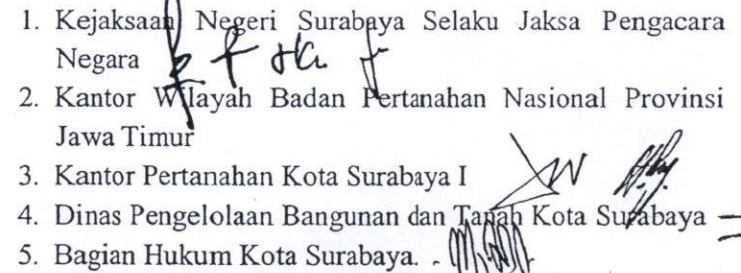 1. Kejaksaan Negeri Surabaya Selaku Jaksa Pengacara
Negara
2. Kantor Wilayah Badan Pertanahan Nasional Provinsi
Jawa Timur
3. Kantor Pertanahan Kota Surabaya I
4. Dinas Pengelolaan Bangunan dan Tanah Kota Surabaya
5. Bagian Hukum Kota Surabaya.